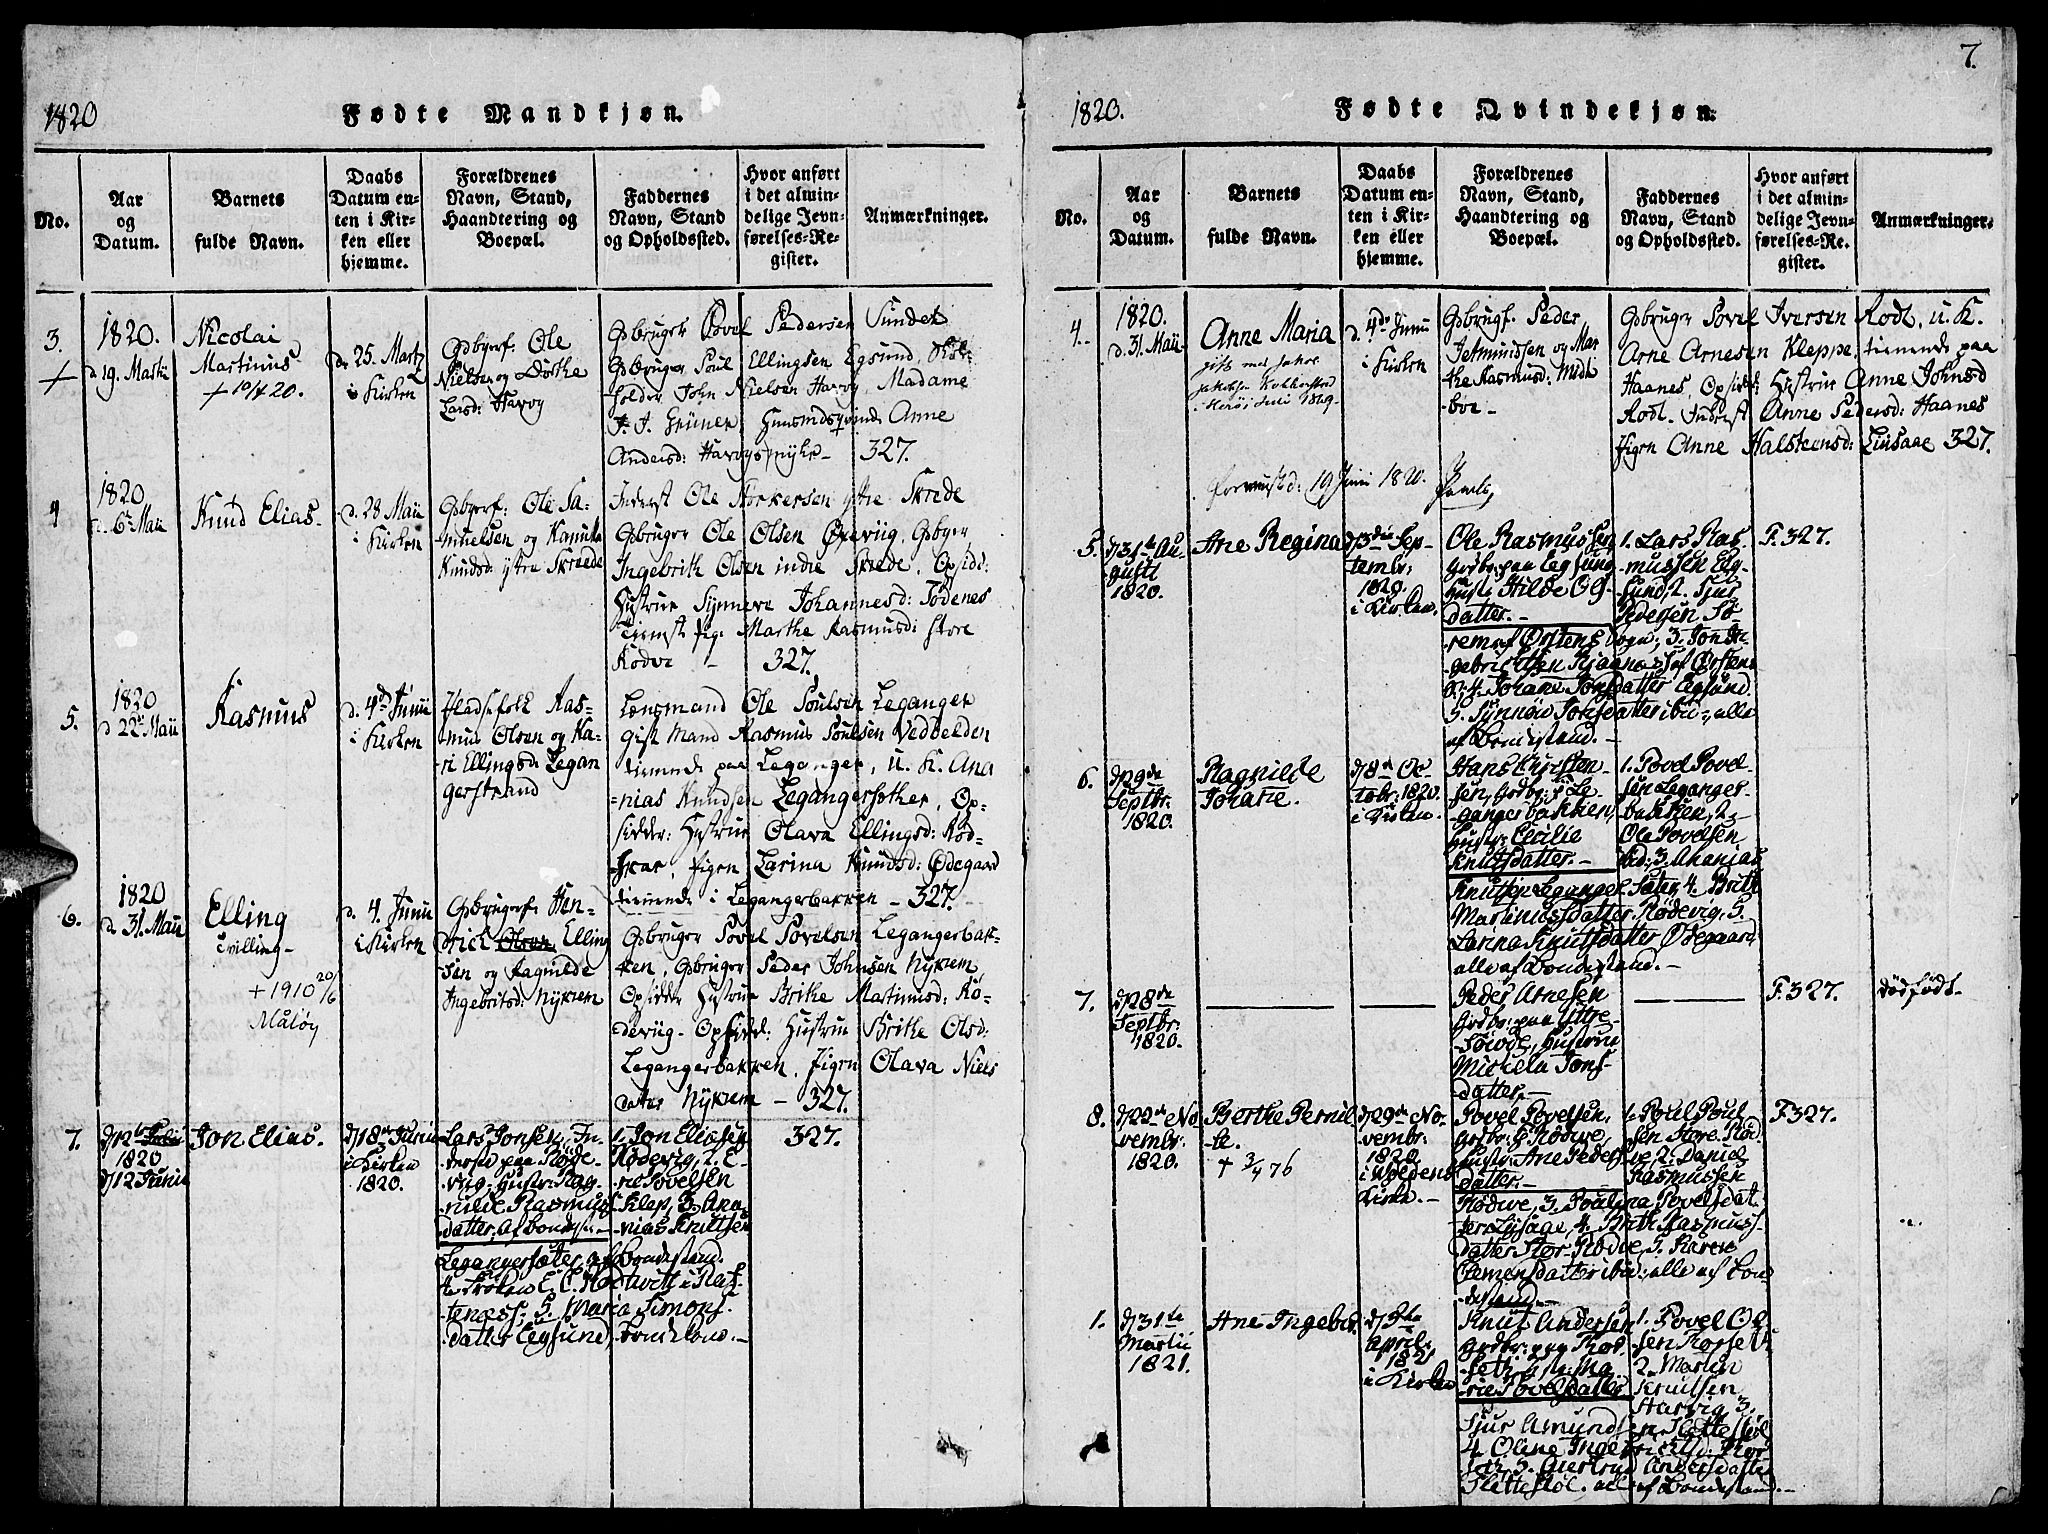 1820
Fødte Mandkjøn.
No.
Aar
og
Datum.
Barnets
fulde Navn.
Daabs
Datum en-
ten i Kir-
ken eller
hjemme.
Forældrenes
Navn, Stand,
Haandtering og
Boepæl.
Faddernes
Navn, Stand
og Opholdssted.
Hvor anført
i det almin-
delige Jevn-
førelses-Re-
gister.
Anmærkninger.
3.
1820.
d 19. Martii
Nicolai
Martinus
+ 10/4 20.
d. 25. Marts
i Kirken
Gbdbgerf: Ole
Nielsen og Dorthe
Larsd: Havog
Gbruger Povel Pedersen Sundet
Gbruger Poul Ellingsen Egsund,
holder John Nielsen Havog, Madame
J. J. Grüner Huusmdsqvinde Anne
Andersd: Havogsmyhr – 327.
4
1820
d. 6te Maii
Knud Elias.
d. 28 Maii
i Kirken
Gbgerf: Ole Sa-
muelsen og
Knudsd: ytre Skreede
Inderst Ole Torkersen ytre Skrede
Gbruger Ole Olsen Ørevüg, Gbger
Ingebrith Olsen indre Skrede, Opsidd:
Hustrue Synneva Johannesd: Todenes
Tienest. Pig. Marthe Rasmusd: Store
Rødve – 327.
5.
1820
d 22de Maii
Rasmus
d. 4de Junii
i Kirken
Pladsefolk Ras-
mus Olsen og Ka-
ri Ellingsd: Legan
gerstrand
Lensmand Ole Poulsen Leganger
Gift Mand Rasmus Poulsen Vedbelden
tienende paa Leganger, u. K. Ana
nias Knudsen Legangersæther, Op-
sidder: Hustrue Olava Ellingsd: Rød-
skar, Pigen Larina Knudsd: Ødegaard
tienende i Legangerbakken – 327.
6.
1820
d. 31. Maii
Elling
Tvilling –
+ 1910 20/6
Måløy
d. 4. Junii
i Kirken
Gbrugerf: Hen-
drich Olsen Elling
sen og Ragnilde
Ingebritsd: Nykrem
Gbruger Povel Povelsen Legangerbak-
ken, Gbruger Peder Johnsen Nykrem,
Opsidder Hustrue Brithe Martinusd: Rø-
devüg – Opsidd: Hustrue Brithe Olsd:
Legangerbakken, Pigen Olava Niels
datter Nykrem – 327.
7.
d/12te Julii
1820
d/12 Junii
Jon Elias.
d/18de Junii
i Kirken
1820.
Lars Jonsen, In-
derste paa Røde-
vig, Hustr: Rag-
nilde Rasmus-
datter, af Bondest. –
1. Jon Eliasen
Rødevig, 2. E-
ric Povelsen
Klep, 3. Ana-
nias Knutsen
Legangersæter, af Bondestand.
4. Frøken E. C. Hodwitz i Raf-
tenæss. 5. Maria Simons-
datter Eegsund, Bondestand. –
327.
7.
1820.
Fødte Qvindekjøn.
No.
Aar
og
Datum.
Barnets
fulde Navn.
Daabs
Datum en-
ten i Kir-
ken eller
hjemme.
Forældrenes
Navn, Stand,
Haandtering og
Boepæl.
Faddernes
Navn, Stand
og Opholdssted.
Hvor anført
i det almin-
delige Jevn-
førelses-Re-
gister.
Anmærkninger.
4.
1820.
d. 31. Maii
Anne Maria
gift med Jakob
i Herøi Juli 1849.
d. 4de Junii
i Kirken
Gbrugf. Peder
Jetmundsen og Mar
the Rasmusd: Midt
boe –
Gbruger Povel Iversen Rodt, u. K.
Arne Arnesen Kleppe, tienende paa
Haanes, Opsidd: Hustrue Anne Johnsd
Rodt. Inderst Anne Pedersd: Haanes
Pigen Anne Halsteensd: Liusaae 327.
19 Junii 1820.
5.
d/31te Au-
gusti
1820.
Ane Regina
d/3die Sep-
tembr:
1820.
i Kirken.
Ole Rasmussen
Grdbr: paa Eegsund
Hustr: Hilde Ols-
datter. –
1. Lars Ras-
mussen Eeg-
sund, 2. Sjur
Pedersen Sø-
rem af Ørstens Sogn, 3. Jon In-
gebrictsen Rjaanes af Ørstens
S; 4. Johane Jonsdatter Eegsund.
5. Synnøve Jonsdatter ibid:, alle
af Bondestand. –
F. 327.
6.
d/29de
Septbr:
1820.
Ragnilde
Johane.
d/8de Oc-
tobr: 1820.
i Kirken.
Hans Kirsten-
sen, Grdbr: i Le-
gangerbakken,
Hustr: Cecilie
Knutsdatter. –
1. Povel Povel-
sen Leganger-
bakken, 2.
Ole Povelsen
ibid: 3. Ananias
Knutsen Leganger Sæter. 4. Brith
Martinusdatter, Rødevig, 5.
Larina Knutsdatter Ødegaard,
alle af Bondestand. –
7.
d/28de
Septbr:
1820.
Peder Arnesen
Grdbr: paa Yttre-
Søivde, Hustrue
Michela Jons-
datter. –
F. 327.
dødfødt.
8.
d/22de No
vembr:
1820.
Berthe Pernil-
le.
+ 3/4 76
d/29de No-
vembr:
1820.
i Woldens
Kirke. –
Povel Povelsen,
Grdbr: i Rødwe,
Hustr: Ane Peders
datter. –
1. Poul Poul
sen Store-Rød
ve, 2. Daniel
Rasmussen
Rødwe, 3. Poulina Povelsdat
ter Lysaae, 4. Brith Rasmuss-
datter Stor-Rødwe, 5. Karen
Clemensdatter ibid:, alle af Bon
destand. –
F. 327.
1.
d/31te
Martii
1821.
Ane Ingebor.
April:
1821
i Kirken
Knut Andersen
Grdbr: paa
Ma-
rie Povelsdatter
1. Povel Ol
sen
2. Marten
Knutsen
Havvig, 3.
Sjur Amundsen Slettestøl
4. Oline Ingebrictsd:
5. Giertrud Andersdatter
Slettestøl. all af Bondestand. –